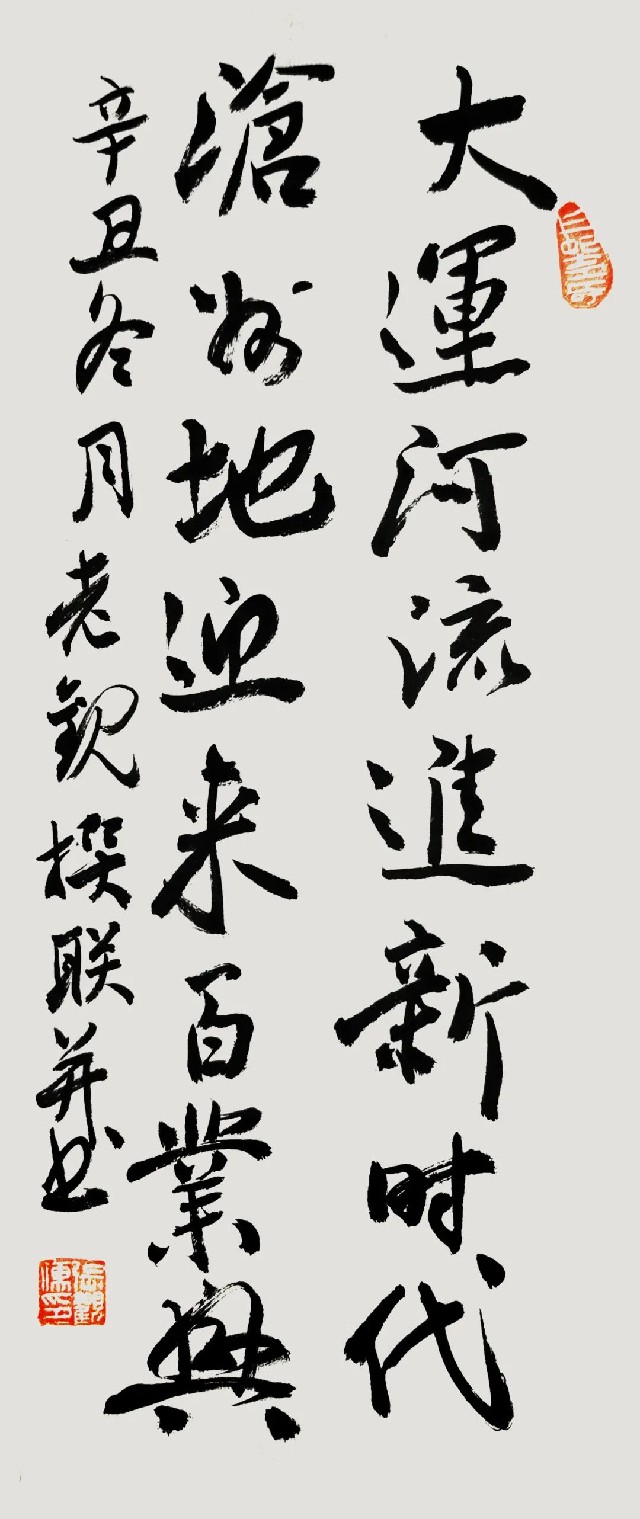 大運河流進新时代
滄州地迎来百業興
辛丑冬月老觀撰联并书